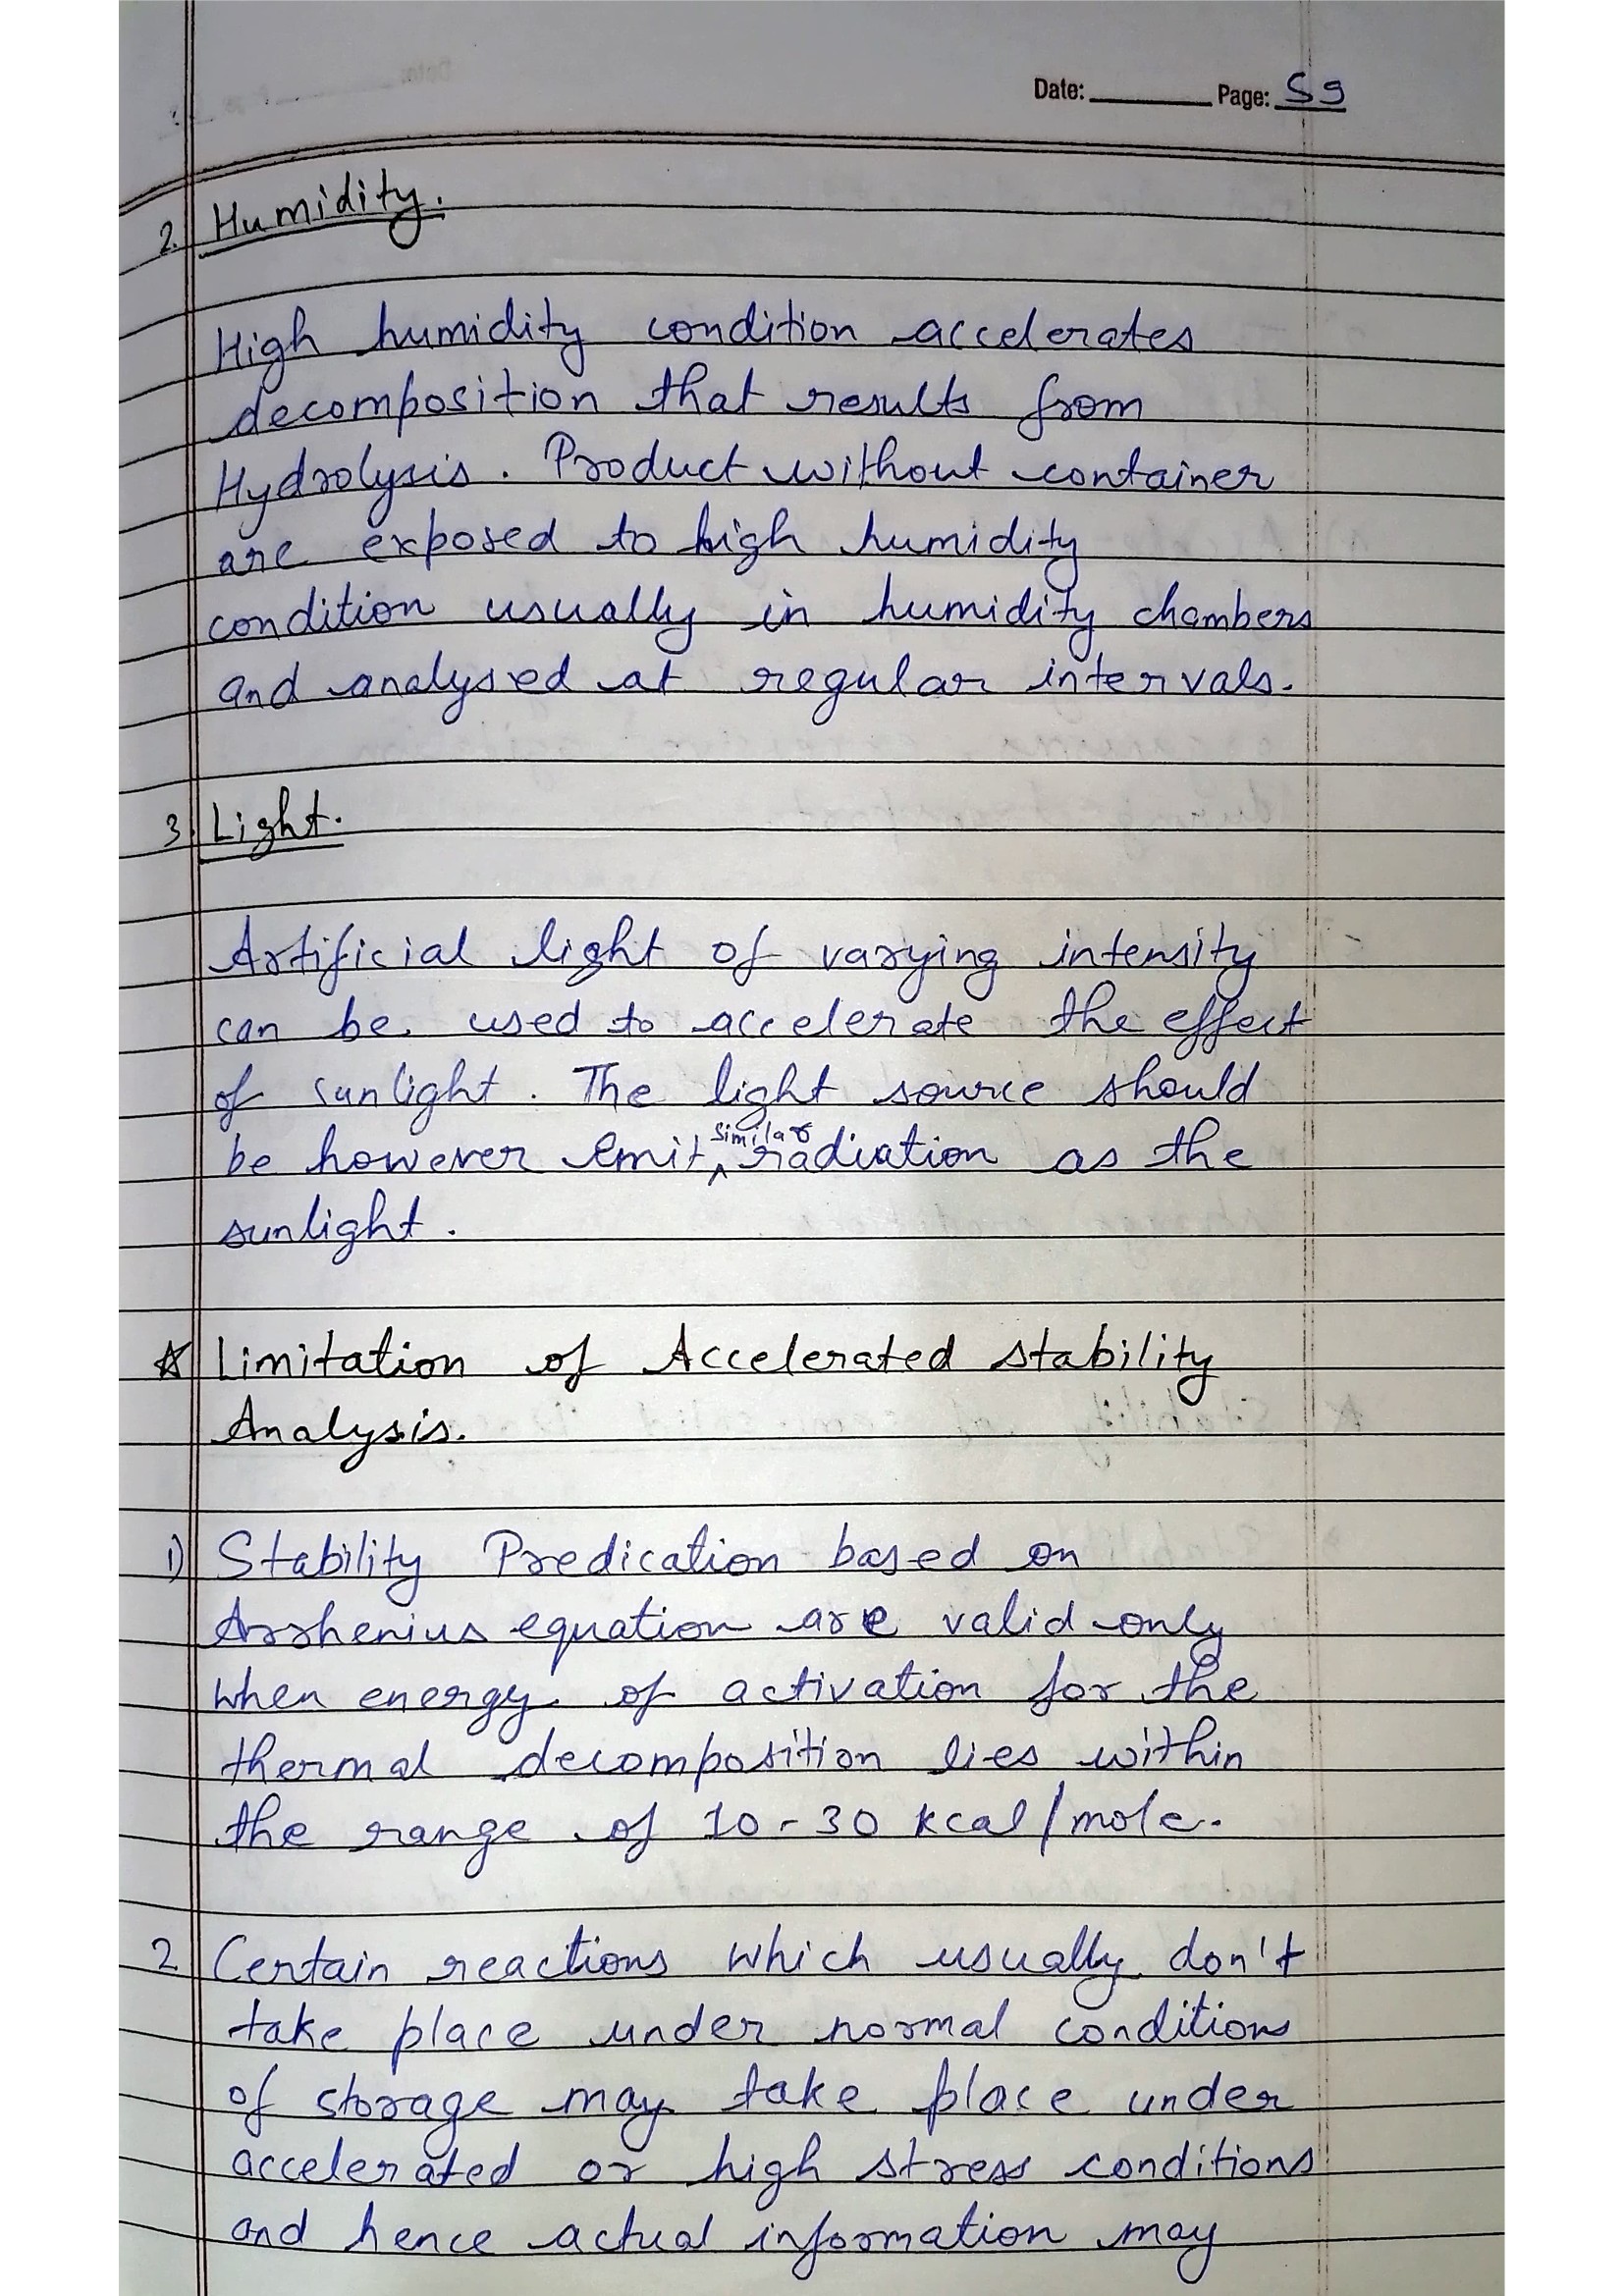 Date: Page: 59
2. Humidity.
High humidity condition accelerates
decomposition that results from
Hydrolysis. Product without container
are exposed to high humidity
condition usually in humidity chambers
and analysed at regular intervals.
3. Light.
Artificial light of varying intensity
can be used to accelerate the effect
of sunlight. The light source should
be however emit similar radiation as the
sunlight.
☆ Limitation of Accelerated stability
Analysis.
1) Stability Predication based on
Arrhenius equation are valid only
when energy of activation for the
thermal decomposition lies within
the range of 10-30 kcal/mole.
2 Certain reactions which usually don't
take place under normal conditions
of storage may take place under
accelerated or high stress conditions
and hence actual information may